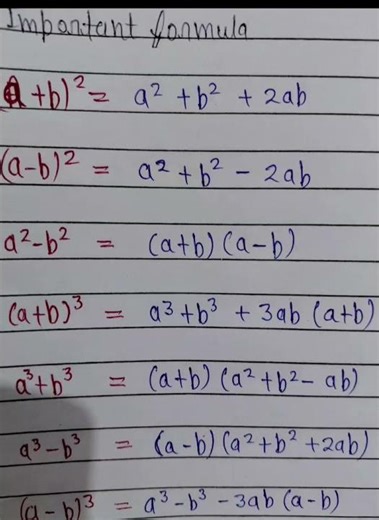 Important formula
(a+b)² = a² + b² + 2ab
(a-b)² = a² + b² - 2ab
a²-b² = (a+b) (a-b)
(a+b)³ = a³+b³ + 3ab (a+b)
a³+b³ = (a+b) (a²+b²- ab)
a³-b³ = (a-b) (a²+b² +2ab)
(a-b)³ = a³-b³ -3ab (a-b)